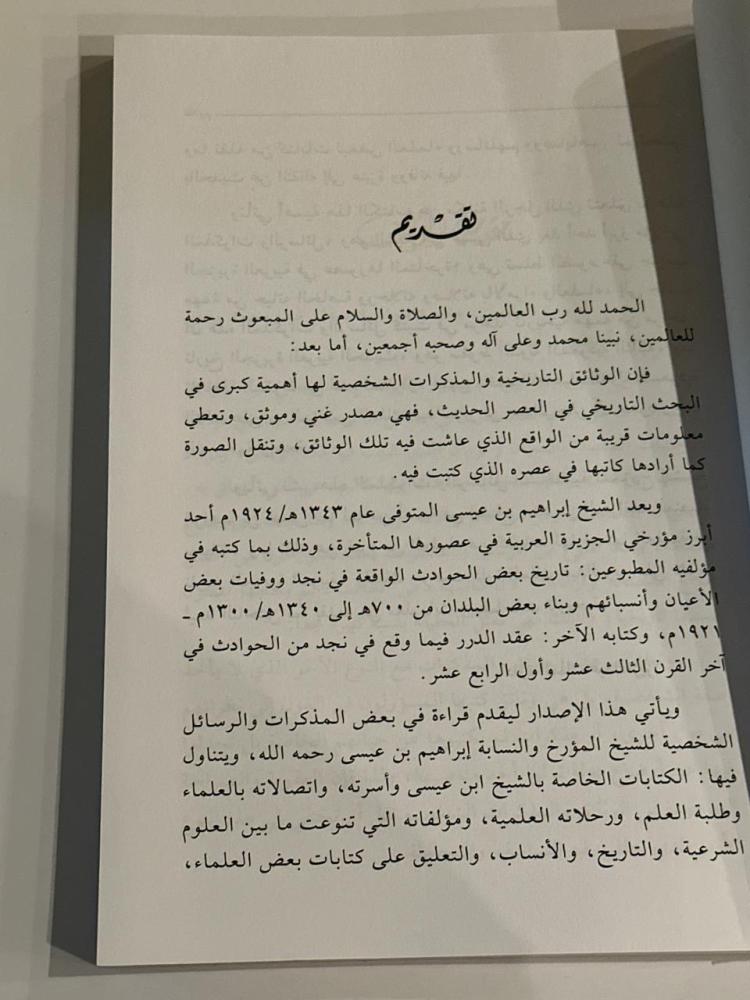 تقديم
الحمد لله رب العالمين، والصلاة والسلام على المبعوث رحمة
للعالمين، نبينا محمد وعلى آله وصحبه أجمعين، أما بعد:
فإن الوثائق التاريخية والمذكرات الشخصية لها أهمية كبرى في
البحث التاريخي في العصر الحديث، فهي مصدر غني وموثق، وتعطي
معلومات قريبة من الواقع الذي عاشت فيه تلك الوثائق، وتنقل الصورة
كما أرادها كاتبها في عصره الذي كتبت فيه.
ويعد الشيخ إبراهيم بن عيسى المتوفى عام ١٣٤٣هـ/١٩٢٤م أحد
أبرز مؤرخي الجزيرة العربية في عصورها المتأخرة، وذلك بما كتبه في
مؤلفيه المطبوعين: تاريخ بعض الحوادث الواقعة في نجد ووفيات بعض
الأعيان وأنسبائهم وبناء بعض البلدان من ٧٠٠هـ إلى ١٣٤٠هـ/١٣٠٠م ـ
١٩٢١م، وكتابه الآخر: عقد الدرر فيما وقع في نجد من الحوادث في
آخر القرن الثالث عشر وأول الرابع عشر.
ويأتي هذا الإصدار ليقدم قراءة في بعض المذكرات والرسائل
الشخصية للشيخ المؤرخ والنسابة إبراهيم بن عيسى رحمه الله، ويتناول
فيها: الكتابات الخاصة بالشيخ ابن عيسى وأسرته، واتصالاته بالعلماء
وطلبة العلم، ورحلاته العلمية، ومؤلفاته التي تنوعت ما بين العلوم
الشرعية، والتاريخ، والأنساب، والتعليق على كتابات بعض العلماء،